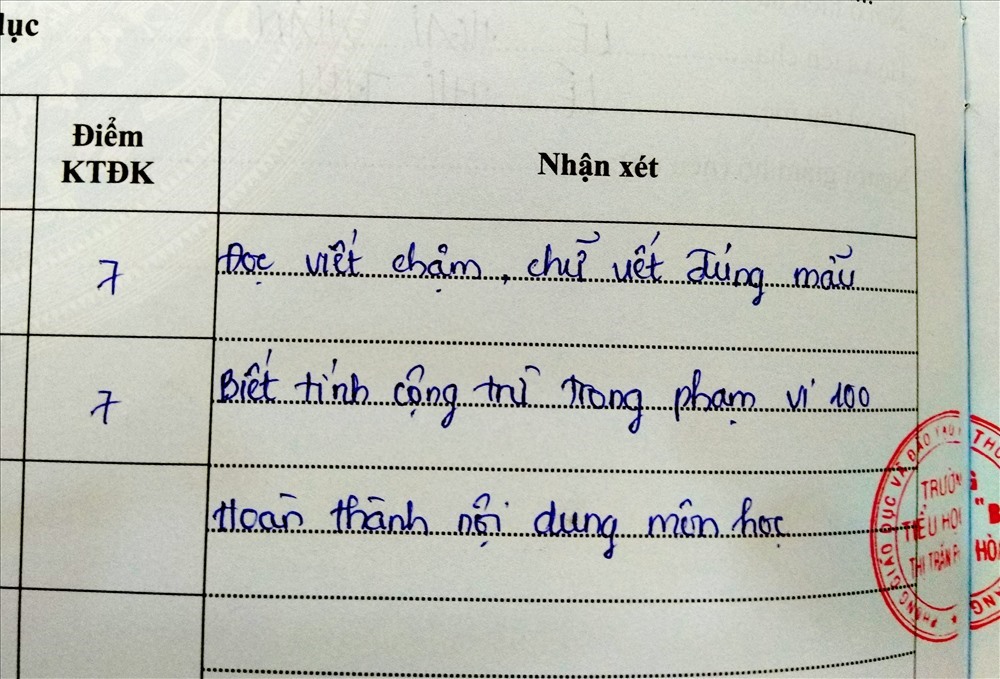 lục
Điểm
KTĐK
Nhận xét
7
Đọc viết chậm, chữ viết đúng mẫu
7
Biết tính cộng trừ trong phạm vi 100
Hoàn thành nội dung môn học
PHÒNG GIÁO DỤC VÀ ĐÀO TẠO
TRƯỜNG
TIỂU HỌC "B
THỊ TRẤN HÒA